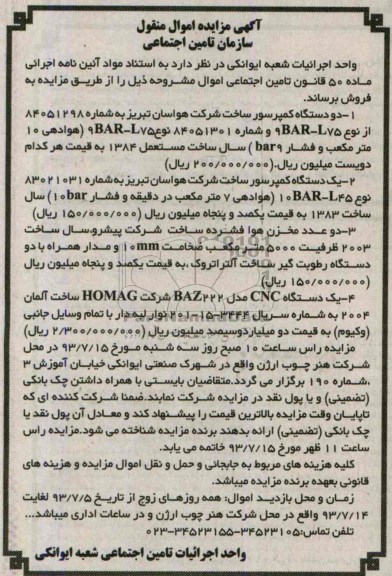 آگهی مزایده اموال منقول
سازمان تامین اجتماعی
واحد اجرائیات شعبه ایوانکی در نظر دارد به استناد مواد آئین نامه اجرائی
ماده ۵۰ قانون تامین اجتماعی اموال مشروحه ذیل را از طریق مزایده به
فروش برساند.
۱-دو دستگاه کمپرسور ساخت شرکت هواسان تبریز به شماره ۸۴۰۵۱۲۹۸
از نوع ۹BAR-L۷۵ و شماره ۸۴۰۵۱۳۰۱ نوع ۹BAR-L۷۵ (هوادهی ۱۰
متر مکعب و فشار ۹ bar) ســال ساخت مستعمل ۱۳۸۴ به قیمت هر کدام
دویست میلیون ریال.(۲۰۰/۰۰۰/۰۰۰ ریال)
۲-یک دستگاه کمپرسور ساخت شرکت هواسان تبریز به شماره ۸۳۰۲۱۰۳۱
نوع ۱۰BAR-L۴۵ (هوادهی ۷ متر مکعب در دقیقه و فشار ۱۰bar) سال
ساخت ۱۳۸۳ به قیمت یکصد و پنجاه میلیون ریال (۱۵۰/۰۰۰/۰۰۰ ریال)
۳-دو عـدد مخـزن هوا فشـرده سـاخت شـرکت پیشرو،سـال ساخت
۲۰۰۳ ظرفیـت ۵۰۰۰ متـر مکعـب ضخامـت ۱۰mm و مـدار همـراه بـا دو
دستگاه رطوبت گیر ساخت آلتراتروک،به قیمت یکصد و پنجاه میلیون ریال
(۱۵۰/۰۰۰/۰۰۰ ریال)
۴-یک دستگاه CNC مدل BAZ۲۲۲ شرکت HOMAG ساخت آلمان
۲۰۰۴ به شماره سـریال ۳۴۴۴-۱۵-۲۰۱-۰ نوار لبه دار با تمام وسایل جانبی
(وکیوم) به قیمت دو میلیاردوسیصد میلیون ریال (۲/۳۰۰/۰۰۰/۰۰۰ ریال)
مزایده راس ساعت ۱۰ صبح روز سه شـنبه مـورخ ۹۳/۷/۱۵ در محل
شرکت هنر چوب ارژن واقع در شهرک صنعتی ایوانکی خیابان آموزش ۳
،شماره ۱۹۰ برگزار می گردد.متقاضیان بایستـی با همراه داشتن چک بانکی
(تضمینی) و یا پول نقد در مزایده شـرکت نمایند.ضمنا شـرکت کننده ای که
تاپایـان وقت مزایده بالاترین قیمت را پیشـنهاد کند و معـادل آن پول نقد یا
چک بانکی (تضمینی) ارائه بدهند برنده مزایده شناخته می شود.مزایده راس
ساعت ۱۱ ظهر مورخ ۹۳/۷/۱۵ خاتمه می یابد.
کلیه هزینه های مربوط به جابجائی و حمل و نقل اموال مزایده و هزینه های
قانونی بعهده برنده مزایده میباشد.
زمـان و محل بازدیـد اموال: همه روزهـای زوج از تاریـخ ۹۳/۷/۵ لغایت
۹۳/۷/۱۴ واقع در محل شرکت هنر چوب ارژن و در ساعات اداری میباشد...
تلفن تماس:۳۴۵۲۳۱۰۵-۳۴۵۲۳۱۵۵-۰۲۳
واحد اجرائیات تامین اجتماعی شعبه ایوانکی